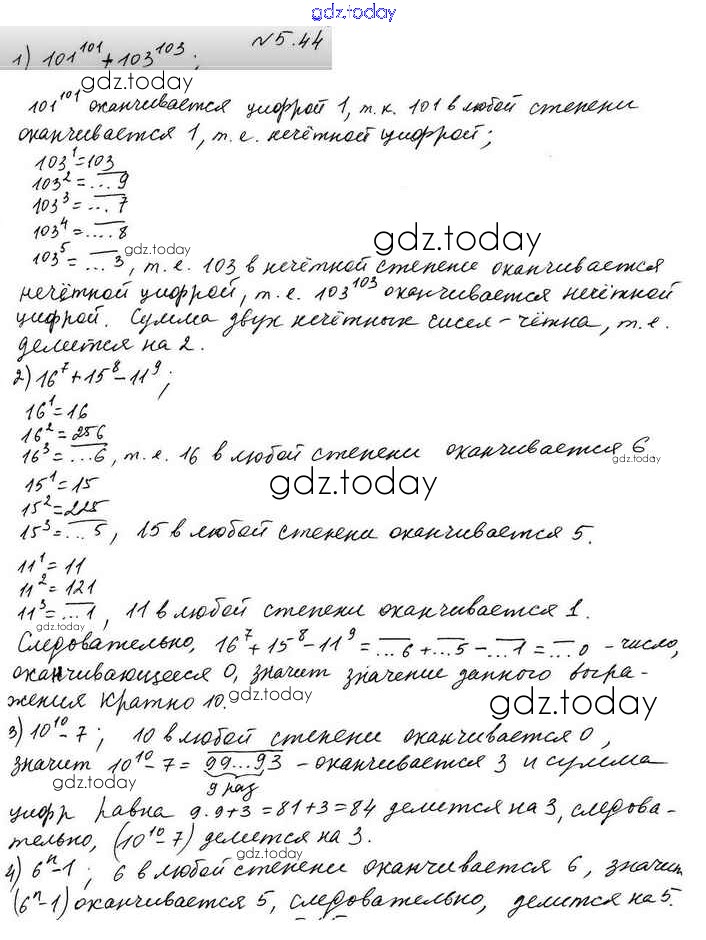 gdz.today
№5.44
1) 101^101 + 103^103;
gdz.today
101^101 оканчивается цифрой 1, т.к. 101 в любой степени
оканчивается 1, т.е. нечётной цифрой;
103^1 = 103
103^2 = ...9
103^3 = ...7
103^4 = ....8
gdz.today
gdz.today
103^5 = ...3, т.е. 103 в нечётной степени оканчивается
нечётной цифрой, т.е. 103^103 оканчивается нечётной
цифрой. Сумма двух нечётных чисел - чётна, т.е.
делится на 2.
2) 16^7 + 15^8 - 11^9;
16^1 = 16
16^2 = 256
16^3 = ...6, т.е. 16 в любой степени оканчивается 6
gdz.today
15^1 = 15
gdz.today
15^2 = 225
15^3 = ...5, 15 в любой степени оканчивается 5.
11^1 = 11
11^2 = 121
11^3 = ...1, 11 в любой степени оканчивается 1.
gdz.today
Следовательно, 16^7 + 15^8 - 11^9 = ...6 + ...5 - ...1 = ...0 - число,
оканчивающееся 0, значит значение данного выра-
жения кратно 10.
gdz.today
gdz.today
3) 10^10 - 7; 10 в любой степени оканчивается 0,
значит 10^10 - 7 = 99...93 - оканчивается 3 и сумма
gdz.today
9 раз
цифр равна 9·9+3=81+3=84 делится на 3, следова-
тельно, (10^10 - 7) делится на 3.
gdz.today
4) 6^n - 1; 6 в любой степени оканчивается 6, значит
(6^n - 1) оканчивается 5, следовательно, делится на 5.